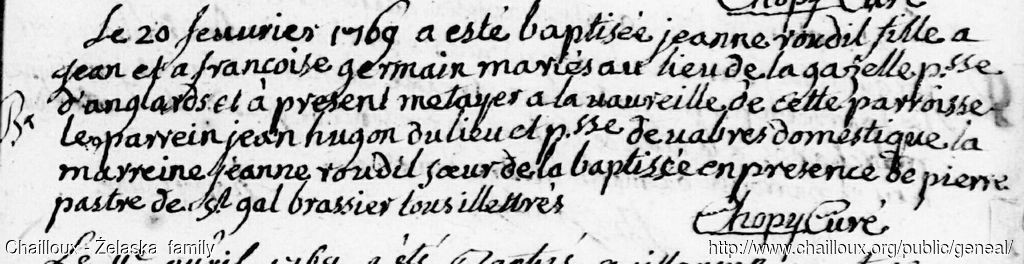 Chopy Curé
Le 20 feuurier 1769 a esté baptisée jeanne roudil fille a
jean et a francoise germain mariés au lieu de la gazelle p.sse
d'anglards et à present metayer a la uaureille de cette parroisse
Br
le parrein jean hugon du lieu et p.sse de uabres domestique la
marreine jeanne roudil sœur de la baptisée en presence de pierre
pastre de st gal brassier tous illettrés
Chopy Curé
Chailloux - Żelaska family
http://www.chailloux.org/public/geneal/